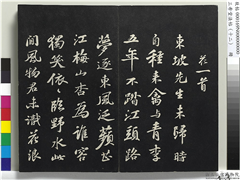 共一首
東坡先生未歸時
自種來禽與青李
五年不踏江頭路
夢逐東風泛蘋芷
江梅山杏為誰容
獨笑依依臨野水此
間風物君未識花浪